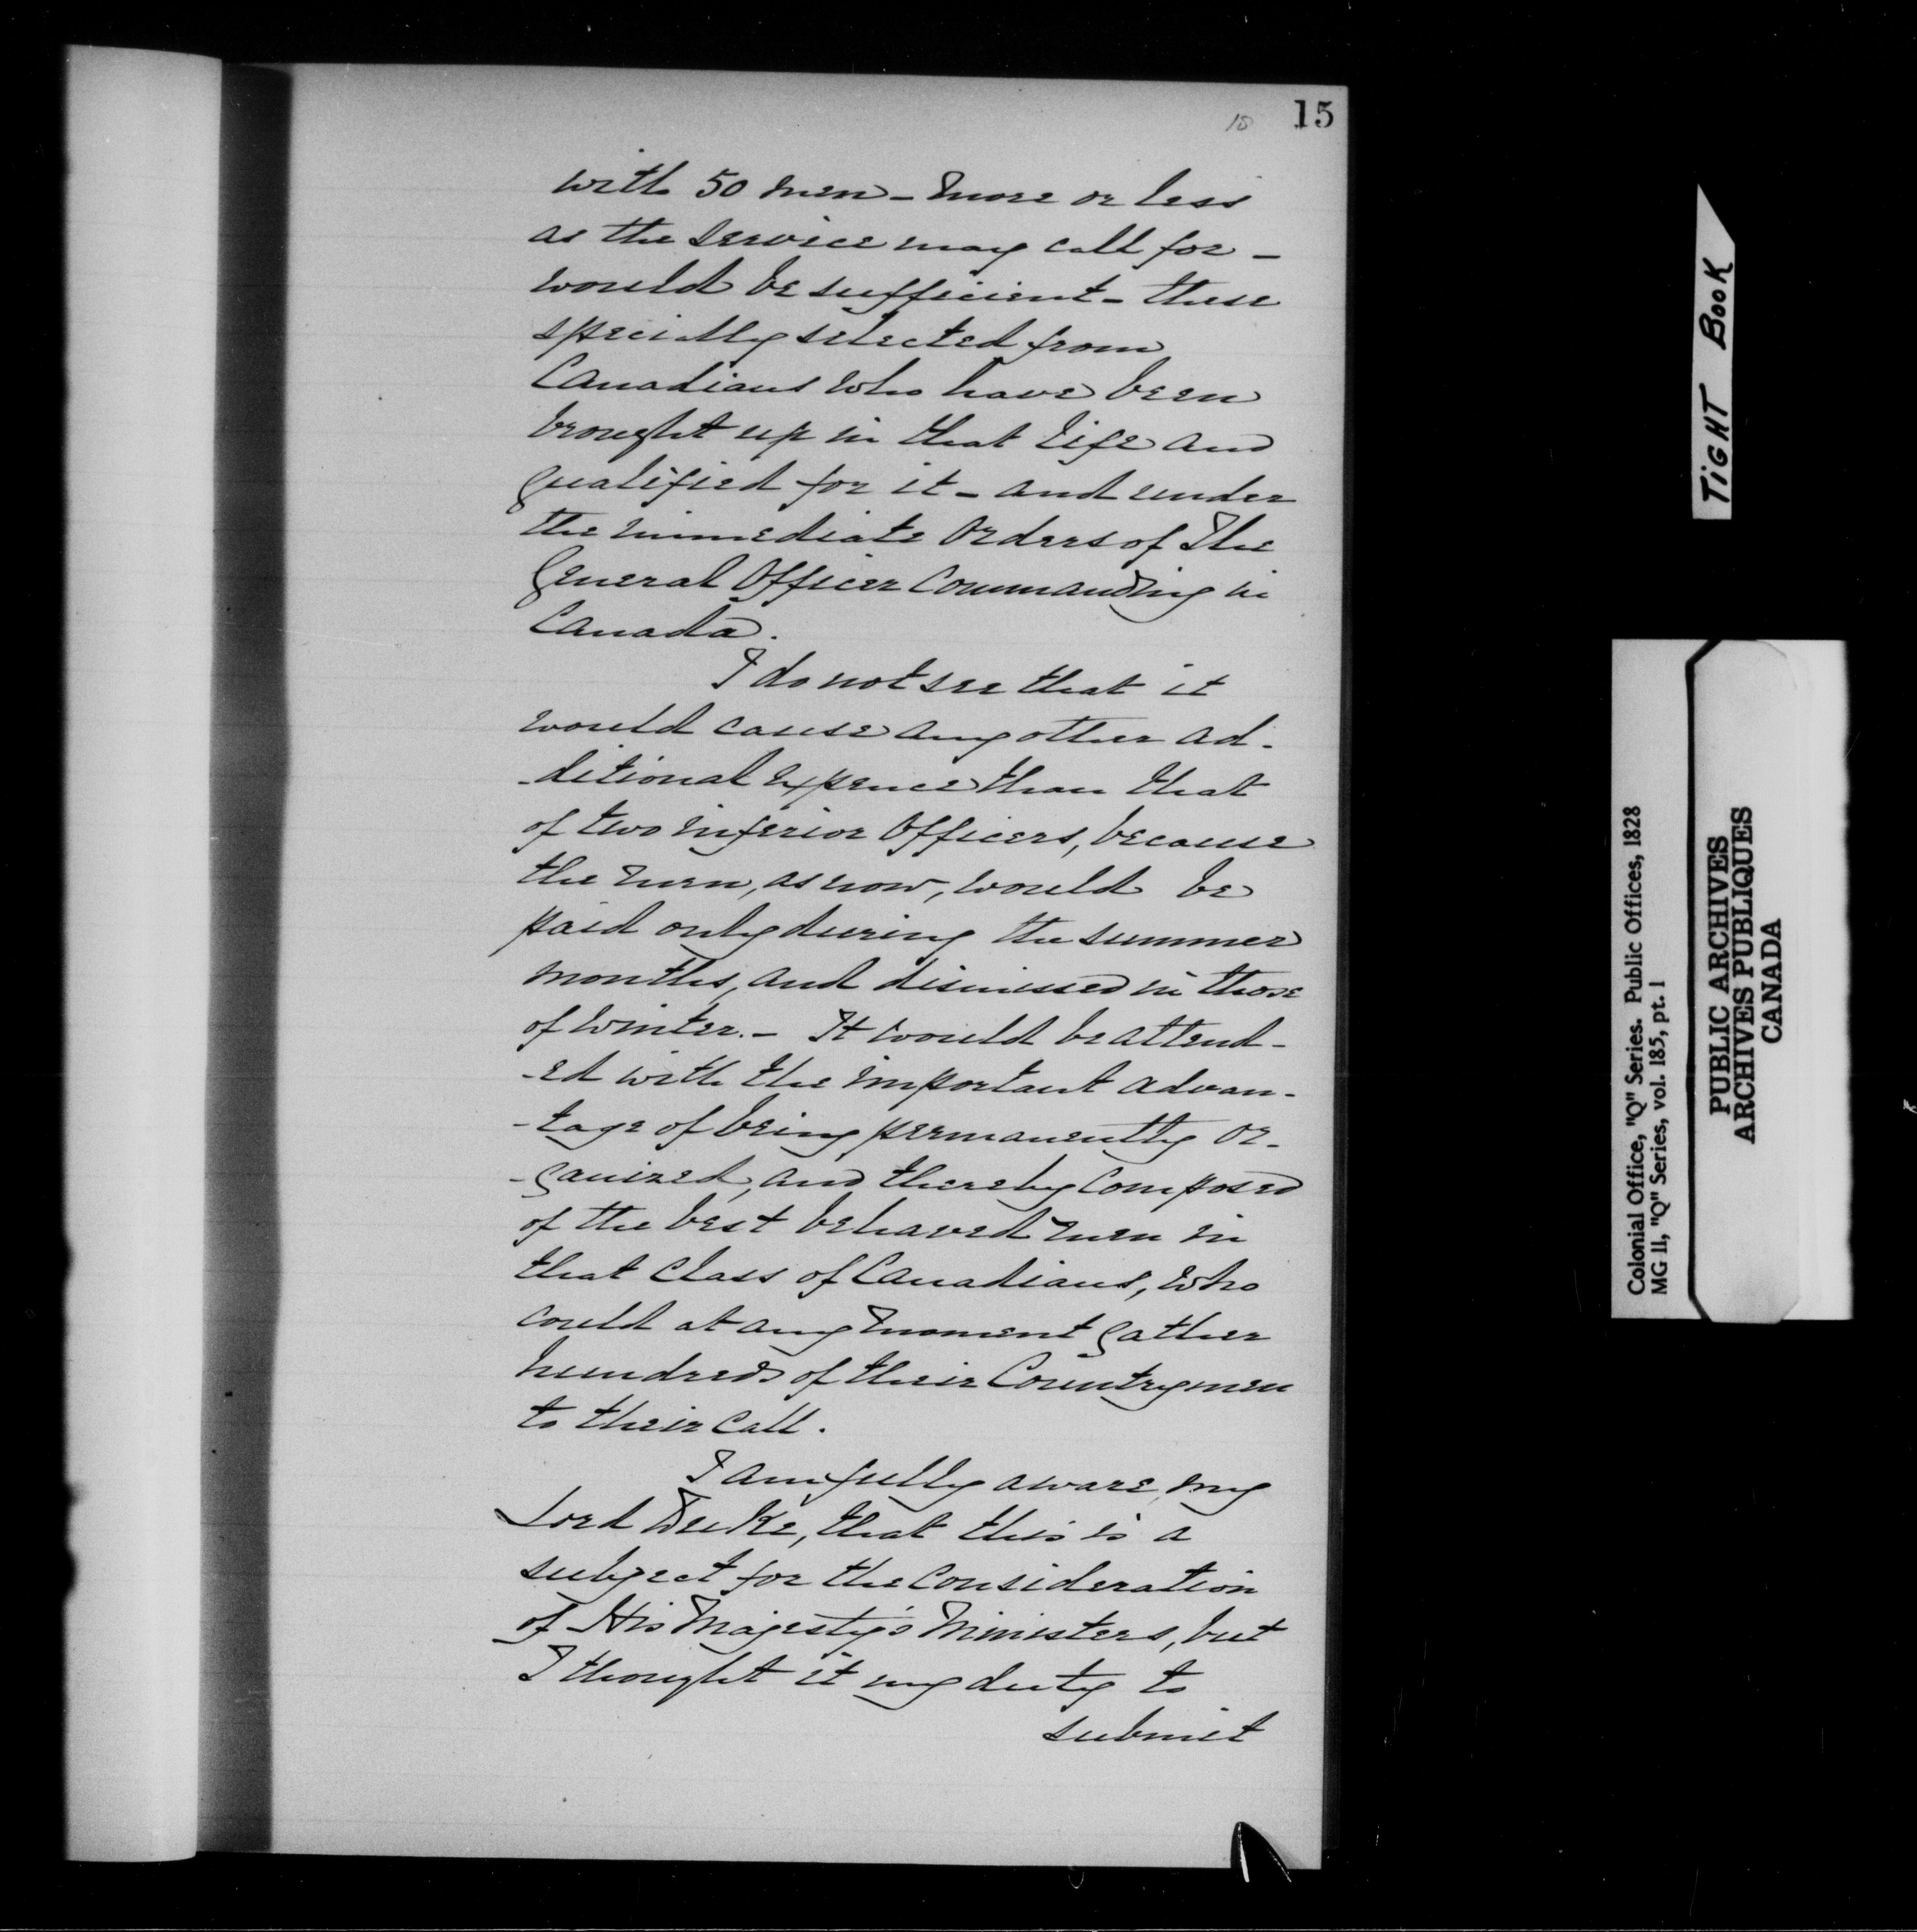 15 15
with 50 men - more or less
as the service may call for -
would be sufficient - these
specially selected from
Canadians who have been
brought up in that life and
qualified for it - and under
the immediate Orders of The
General Officer Commanding in
Canada.
I do not see that it
would cause any other ad-
-ditional expence than that
of two inferior Officers, because
the men, as now, would be
paid only during the summer
months, and dismissed in those
of winter. - It would be attend-
-ed with the important advan-
-tage of being permanently or-
-ganized, and thereby composed
of the best behaved men in
that class of Canadians, who
could at any moment gather
hundreds of their Countrymen
to their call.
I am fully aware, my
Lord Duke, that this is a
subject for the consideration
of His Majesty's Ministers, but
I thought it my duty to
submit
TIGHT BOOK
Colonial Office, "Q" Series. Public Offices, 1828
MG 11, "Q" Series, vol. 185, pt. 1
PUBLIC ARCHIVES
ARCHIVES PUBLIQUES
CANADA